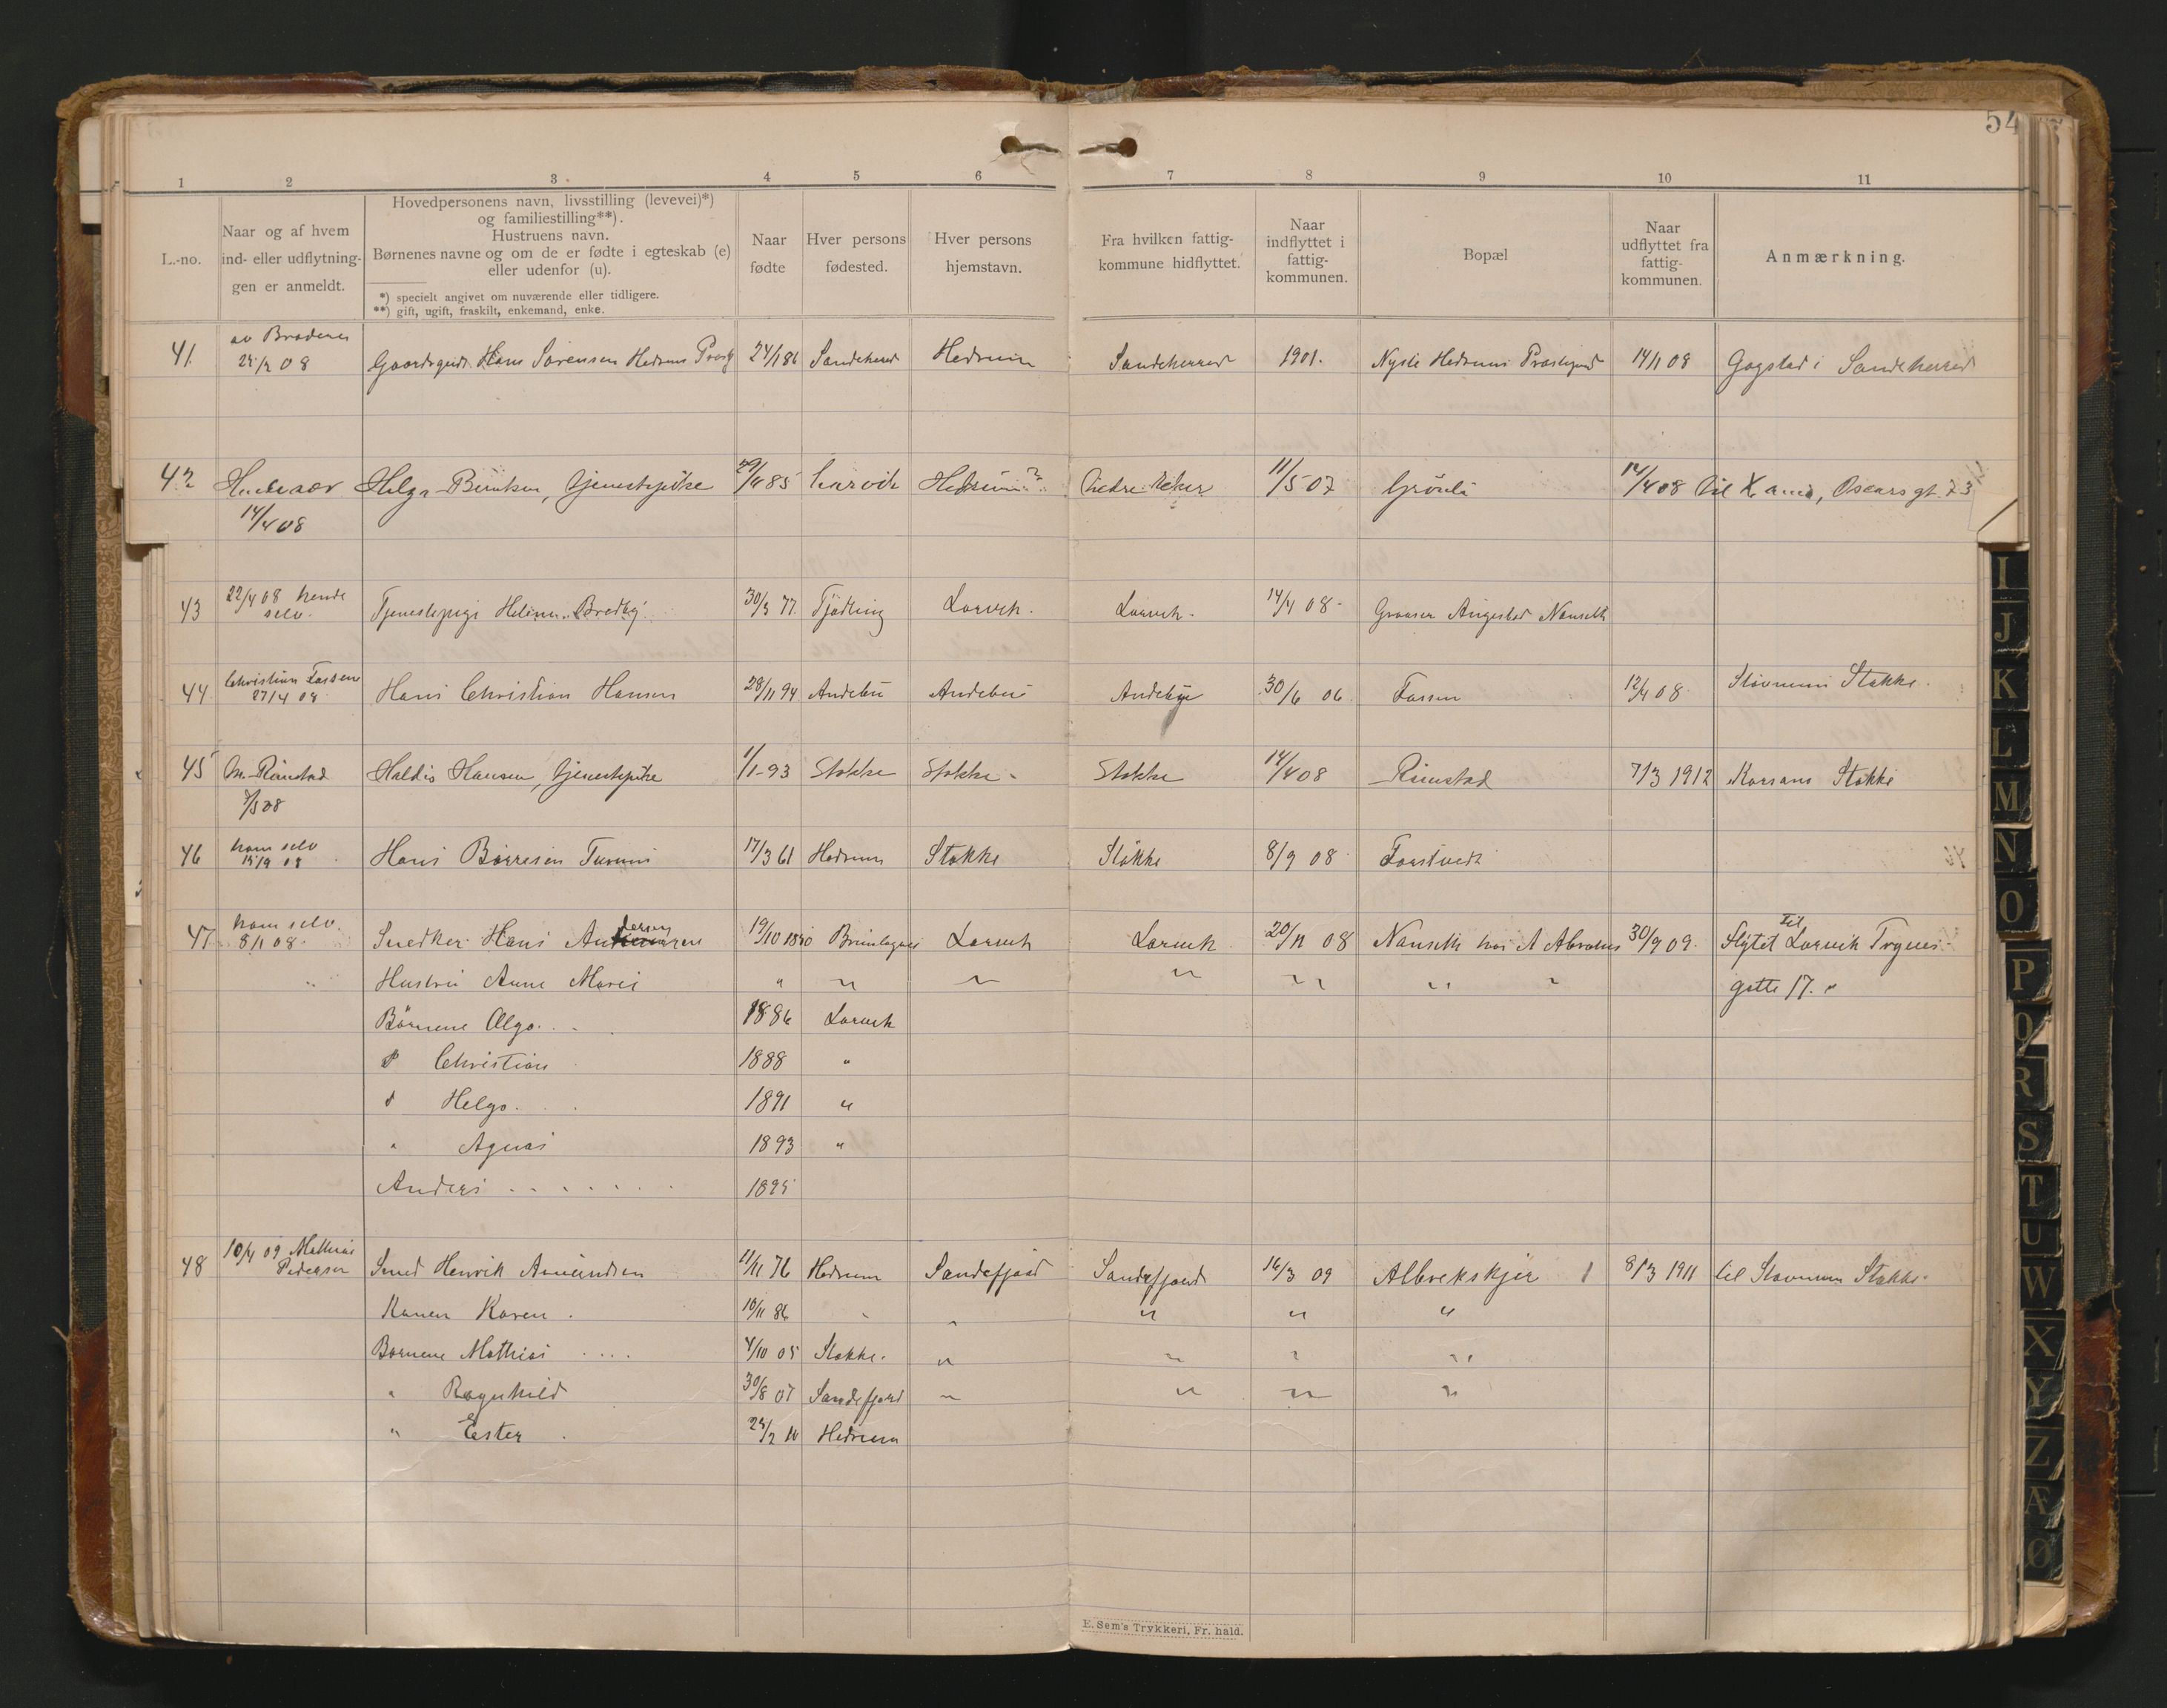 54
1 2 3 4 5 6 7 8 9 10 11
L.-no.
Naar og af hvem
ind- eller udflytnin-
gen er anmeldt.
Hovedpersonens navn, livsstilling (levevei)*)
og familiestilling**).
Hustruens navn.
Børnenes navne og om de er fødte i egteskab (e)
eller udenfor (u).
*) specielt angivet om nuværende eller tidligere.
**) gift, ugift, fraskilt, enkemand, enke.
Naar
fødte
Hver persons
fødested.
Hver persons
hjemstavn.
Fra hvilken fattig-
kommune hidflyttet.
Naar
indflyttet i
fattig-
kommunen.
Bopæl
Naar
udflyttet fra
fattig-
kommunen.
Anmærkning.
av Broderen
41 08 Hans Sørensen Hedrum 24/1 86 Sandeherred Hedrum Sandeherred 1901. Hedrums Præstegaard 14/1 08 Gogstad i Sandeherred
42 Helga Tjenestepike 85 Larvik Hedrum? Aker 11/5 07 Grønli 14/4 08 Til Xania, Oscarsgt. 73
14/4 08
22/4 08 hende
43 selv. Tjenestepige 30/3 77. Tjødling Larvik. Larvik. 14/4 08 Nanseth
44 27/4 08 Hans Christian Hansen 28/11 94 Andebu Andebu Andebu 30/6 06 12/4 08 Stokke.
45 Rimstad Haldis Hansen, Tjenestepike 1/1-93 Stokke Stokke Stokke 14/4 08 Rimstad 7/3 1912 Stokke
7/5 08
ham selv
46 15/9 08 Hans Børresen 17/3 61 Hedrum Stokke Stokke 8/9 08
ham selv. Larsen
47 8/1 08 Snedker Hans 19/10 1850 Brunlagnes Larvik Larvik 20/11 08 Nanseth hos A 30/9 09. Flytet til Larvik Trynes-
" Hustru Anne Marie " " " " " " " gatte 17.
Børnene Olga 1886 Larvik
" Christian 1888 "
" Helga 1891 "
" Agnes 1893 "
Anders 1895
10/4 09 Mathias
48 Pedersen Smed Henrik Amundsen 11/11 76 Hedrum Sandefjord Sandefjord 16/3 09 Albrekskjer 8/3 1911 til Stovnum Stokke.
Konen Karen 10/11 86 " " " " "
Børnene Mathias 4/10 05 Stokke. " " " "
" Ragnhild 30/8 07 Sandefjord " " " "
" Ester 25/2 10 Hedrum
E. Sem's Trykkeri, Fr. hald.
I
J
K
L
M
N
O
P
Q
R
S
T
U
W
X
Y
Z
Æ
Ø